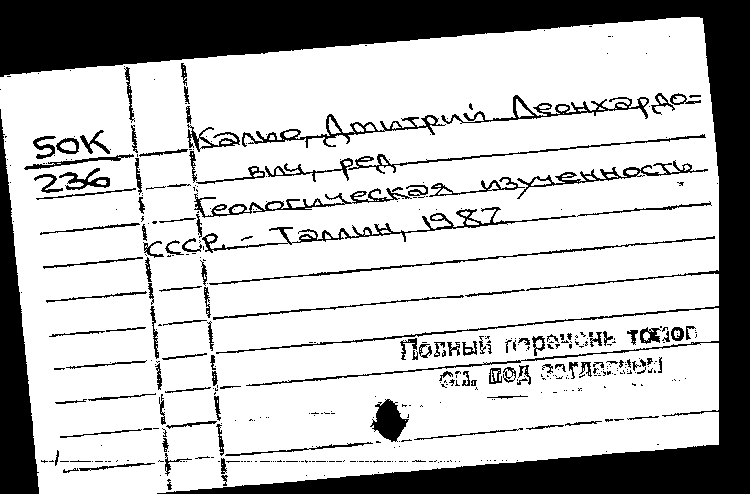 50К
236
Калио, Дмитрий Леонхардо=
вич, ред
Геологическая изученность
СССР. - Таллин, 1987
Полный перечень томов
см. под заглавием